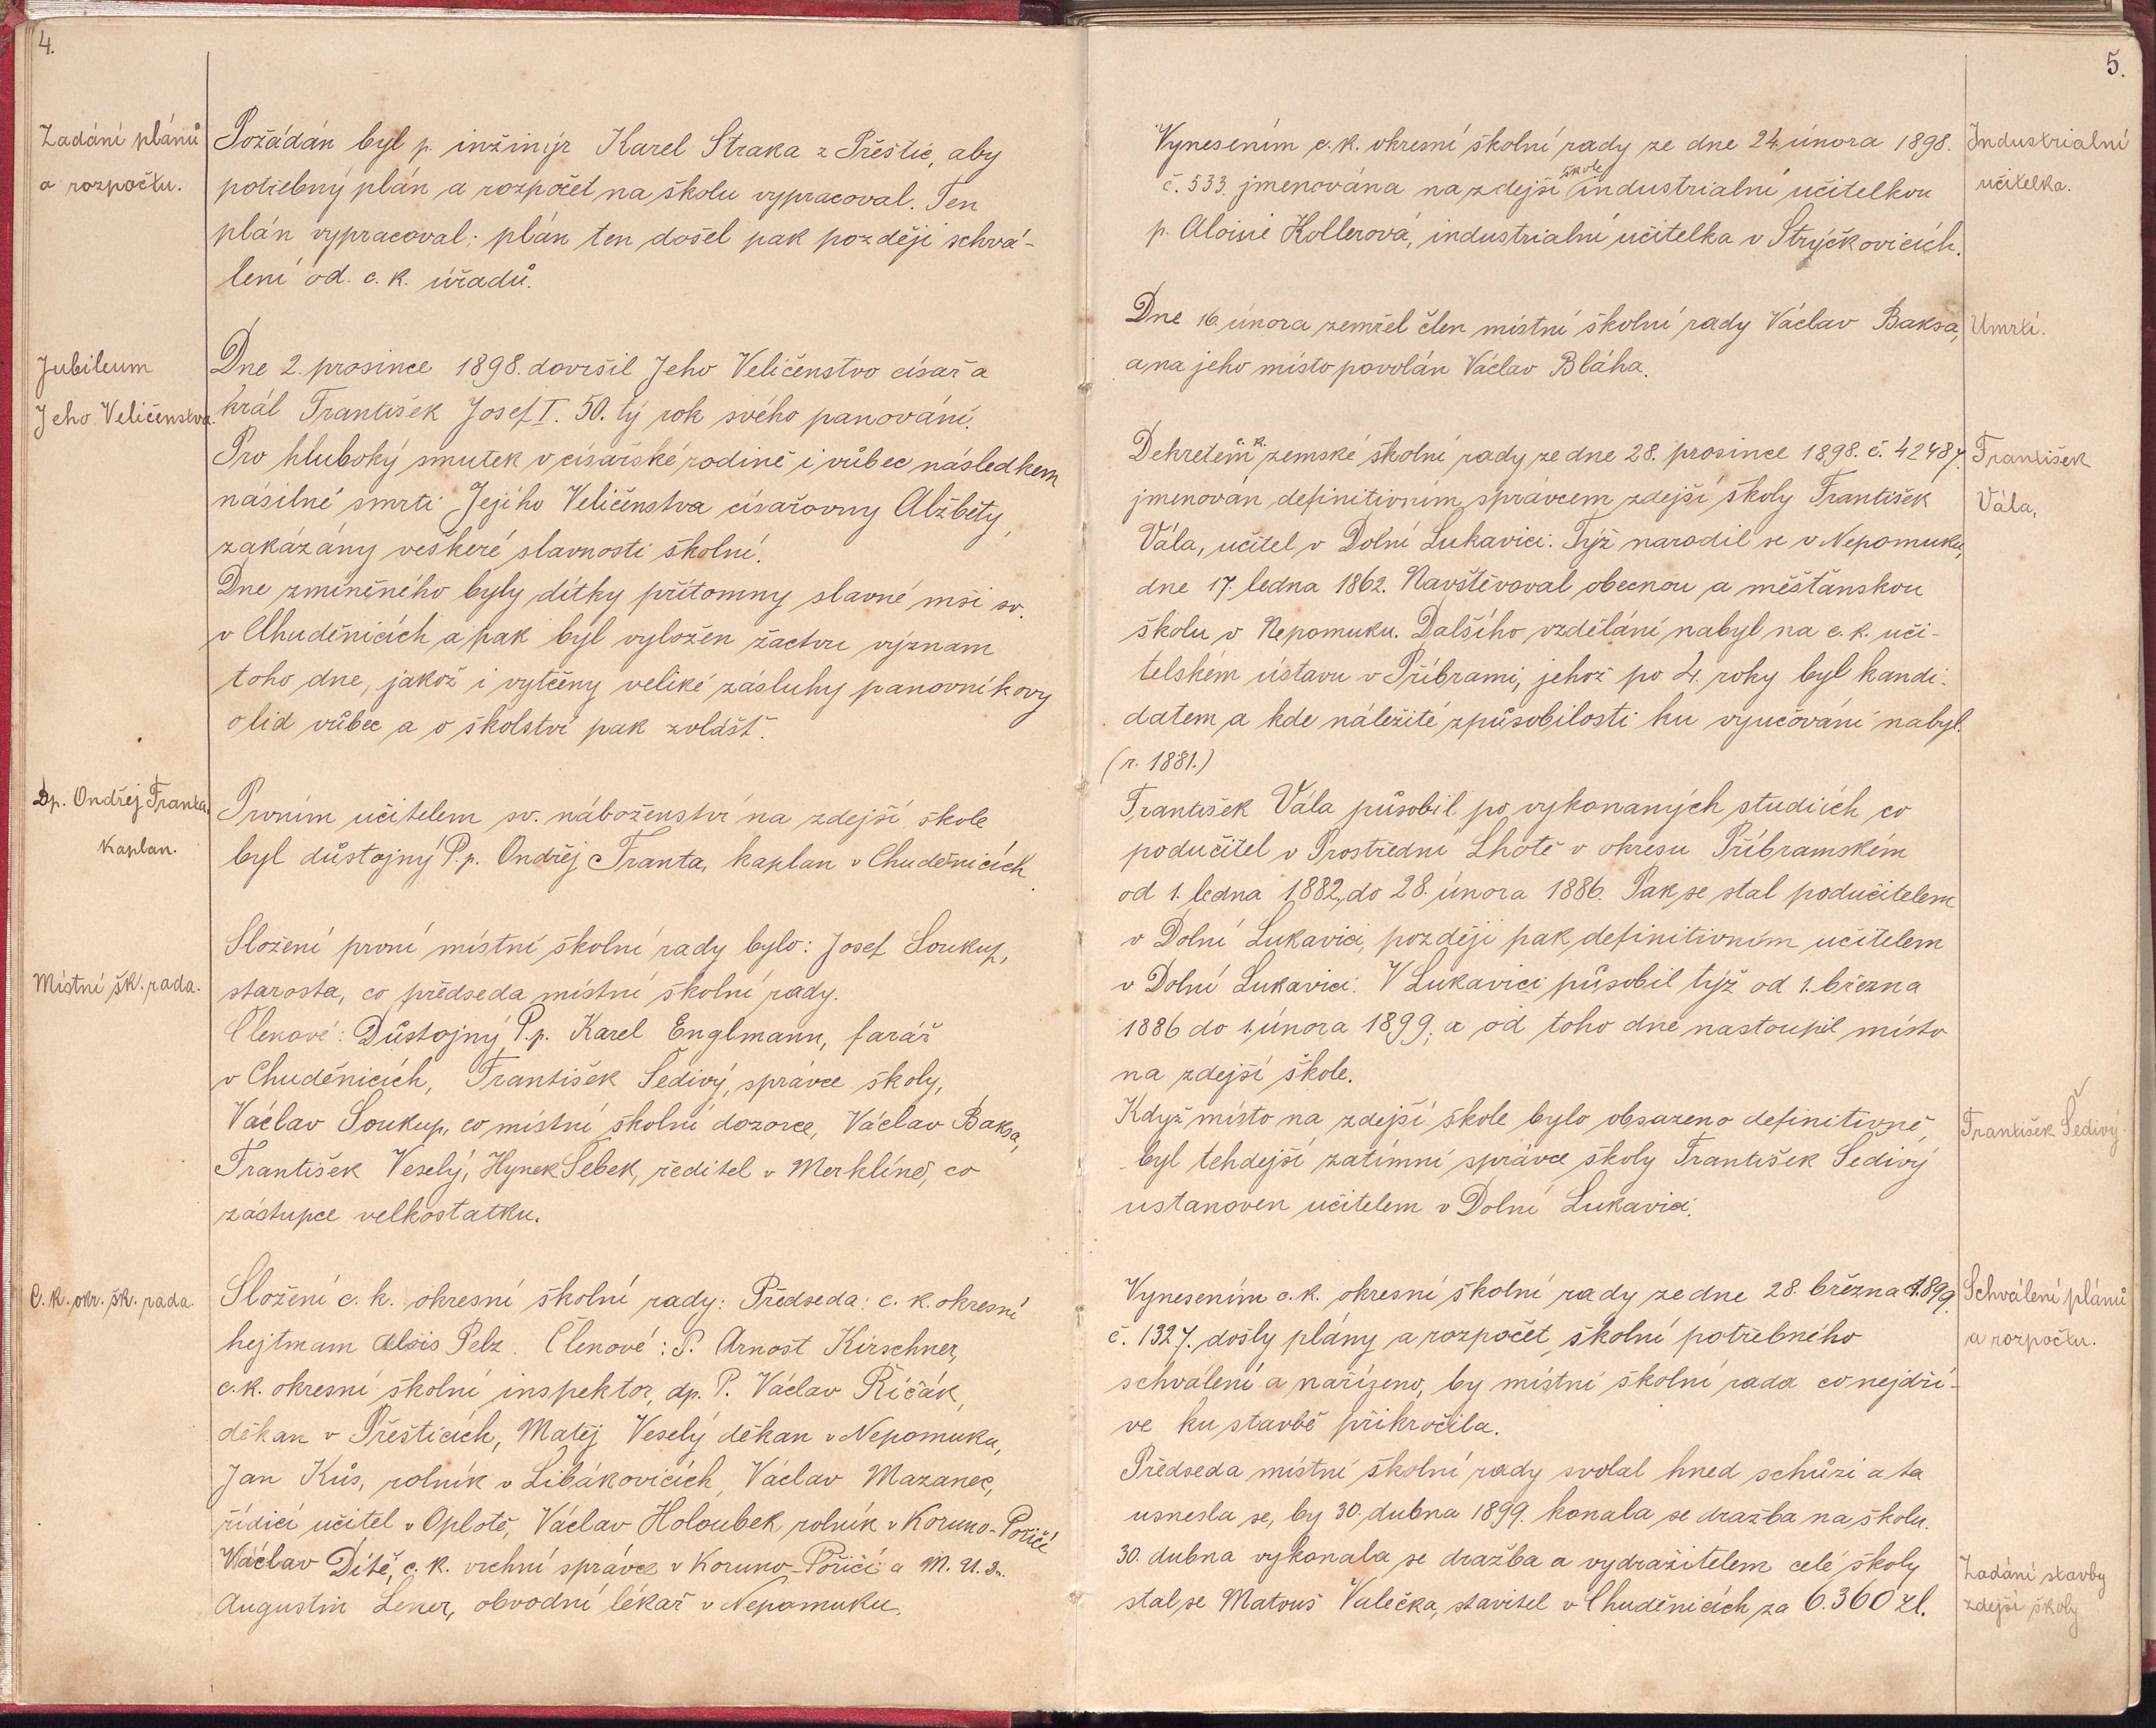 4.
Zadání plánů
a rozpočtu.
Požádán byl p. inžinýr Karel Straka z Přeštic, aby
potřebný plán a rozpočet na školu vypracoval. Ten
plán vypracoval; plán ten došel pak později schvá-
lení od c. k. úřadů.
Jubileum
Jeho Veličenstva.
Dne 2. prosince 1898. dovršil Jeho Veličenstvo císař a
král František Josef I. 50. tý rok svého panování.
Pro hluboký smutek v císařské rodině i vůbec následkem
násilné smrti Jejího Veličenstva císařovny Alžběty,
zakázány veškeré slavnosti školní.
Dne zmíněného byly dítky přítomny slavné mši sv.
v Chuděnicích a pak byl vyložen žactvu význam
toho dne, jakož i vytčeny veliké zásluhy panovníkovy
o lid vůbec a o školství pak zvlášť.
Dp. Ondřej Franta,
Kaplan.
Prvním učitelem sv. náboženství na zdejší škole
byl důstojný P. p. Ondřej Franta, kaplan v Chuděnicích.
Místní šk. rada.
Složení první místní školní rady bylo: Josef Soukup,
starosta, co předseda místní školní rady.
Členové: Důstojný P. p. Karel Englmann, farář
v Chuděnicích, František Šedivý, správce školy,
Václav Soukup, co místní školní dozorce, Václav Baksa,
František Veselý, Hynek Šebek, ředitel v Merklíně, co
zástupce velkostatku.
C. k. okr. šk. rada.
Složení c. k. okresní školní rady: Předseda: c. k. okresní
hejtmam Alois Pelz. Členové: P. Arnošt Kirschner,
c. k. okresní školní inspektor, dp. P. Václav Říčák,
děkan v Přešticích, Matěj Veselý děkan v Nepomuku,
Jan Kůs, rolník v Libákovicích, Václav Mazanec,
řídící učitel v Oplotě, Václav Holoubek, rolník v Koruno-Poříčí
Václav Dítě, c. k. vrchní správce v Koruno-Poříčí a M. U. Dr.
Augustin Lener, obvodní lékař v Nepomuku.
5.
Vynesením c. k. okresní školní rady ze dne 24. února 1898.
č. 533. jmenována na zdejší škole industrialní učitelkou
p. Aloisie Kollerová, industrialní učitelka v Strýčkovicích.
Industrialní
učitelka.
Dne 16. února zemřel člen místní školní rady Václav Baksa,
a na jeho místo povolán Václav Bláha.
Umrtí.
Dekretem c. k. zemské školní rady ze dne 28. prosince 1898. č. 42487.
jmenován definitivním správcem zdejší školy František
Vála, učitel v Dolní Lukavici. Týž narodil se v Nepomuku,
dne 17. ledna 1862. Navštěvoval obecnou a měšťanskou
školu v Nepomuku. Dalšího vzdělání nabyl na c. k. uči-
telském ústavu v Příbrami, jehož po 4. roky byl kandi-
datem a kde náležité způsobilosti ku vyučování nabyl.
(r. 1881.)
František
Vála,
František Vála působil po vykonaných studiích co
podučitel v Prostřední Lhotě v okresu Příbramském
od 1. ledna 1882, do 28. února 1886. Pak se stal podučitelem
v Dolní Lukavici, později pak definitivním učitelem
v Dolní Lukavici. V Lukavici působil týž od 1. března
1886 do 1. února 1899, a od toho dne nastoupil místo
na zdejší škole.
Když místo na zdejší škole bylo obsazeno definitivně,
byl tehdejší zatímní správce školy František Šedivý
ustanoven učitelem v Dolní Lukavici.
František Šedivý.
Vynesením c. k. okresní školní rady ze dne 28. března 1899.
č. 1327. došly plány a rozpočet školní potřebného
schválení a nařízeno, by místní školní rada co nejdří-
ve ku stavbě přikročila.
Schválení plánů
a rozpočtu.
Předseda místní školní rady svolal hned schůzi a ta
usnesla se, by 30. dubna 1899. konala se dražba na školu.
30. dubna vykonala se dražba a vydražitelem celé školy
stal se Matouš Valečka, stavitel v Chuděnicích za 6.360 zl.
Zadání stavby
zdejší školy